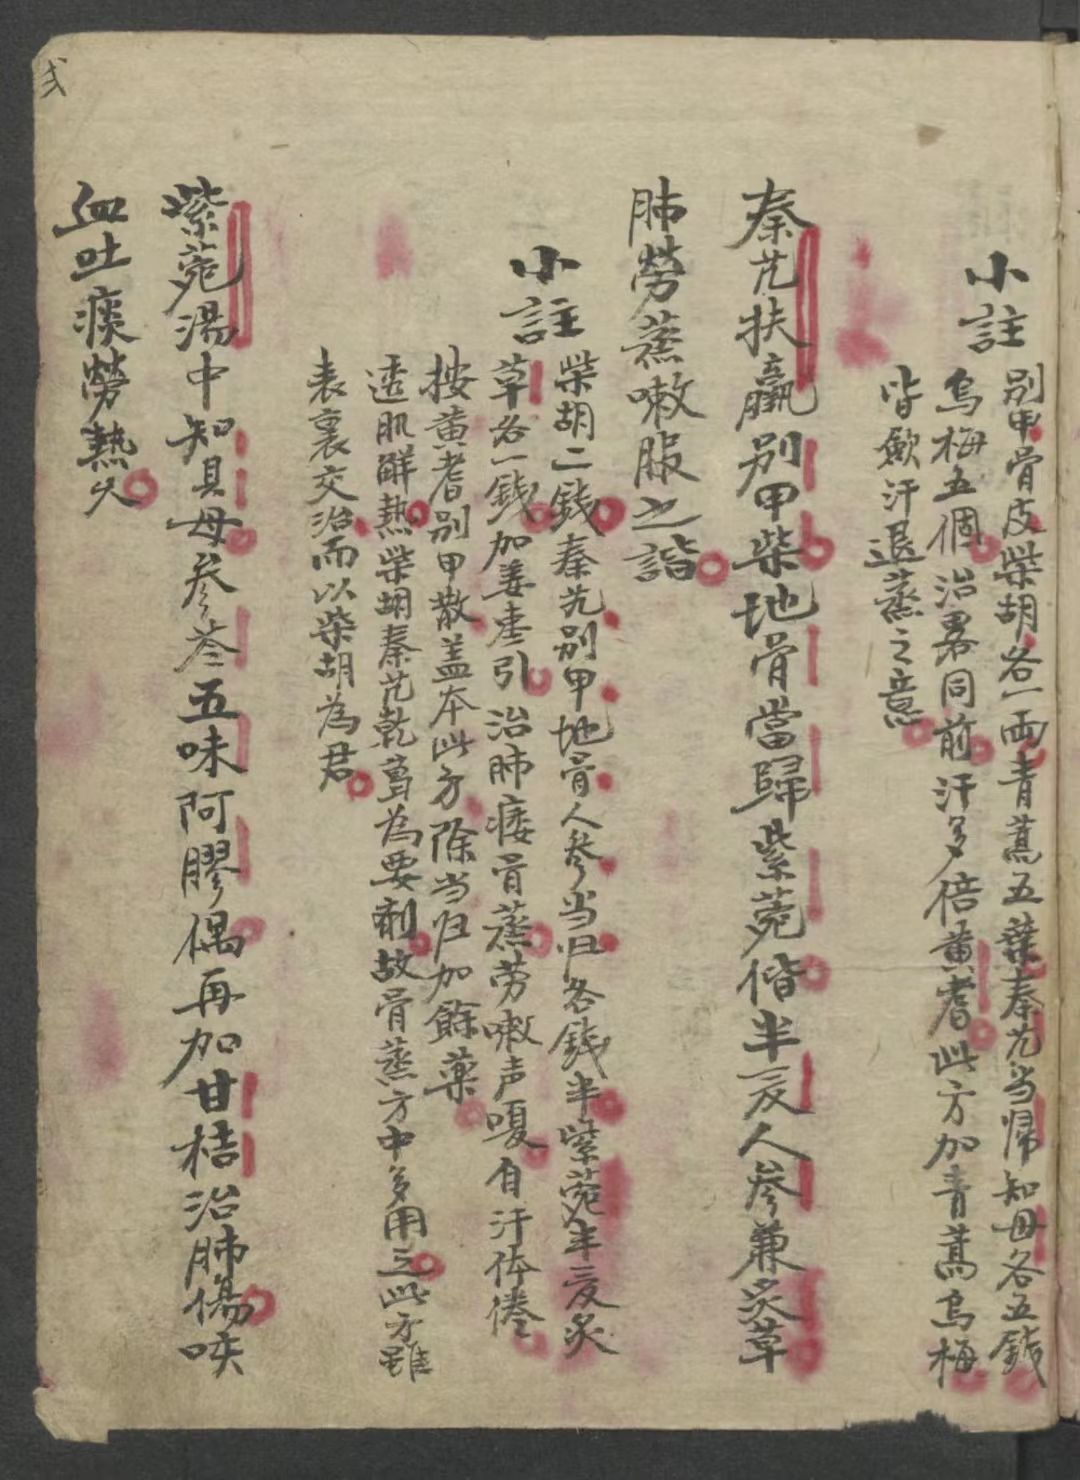 弍
小註
別甲骨皮柴胡各一両青蒿五葉秦艽当帰知母各五錢
烏梅五個治畧同前汗多倍黄耆此方加青蒿烏梅
皆歛汗退蒸之意
秦艽扶羸別甲柴地骨當歸紫菀偕半夏人參兼炙草
肺勞蒸嗽服之諧
小註
柴胡二錢秦艽別甲地骨人參当归各錢半紫菀半夏炙
草各一錢加姜枣引治肺痿骨蒸劳嗽声嗄自汗体倦
按黄耆別甲散盖本此方除当归加餘藥
透肌觧熱柴胡秦艽乾葛為要剤故骨蒸方中多用之此方雖
表裏交治而以柴胡為君
紫菀湯中知貝母參苓五味阿膠偶再加甘桔治肺傷咳
血吐痰勞熱久